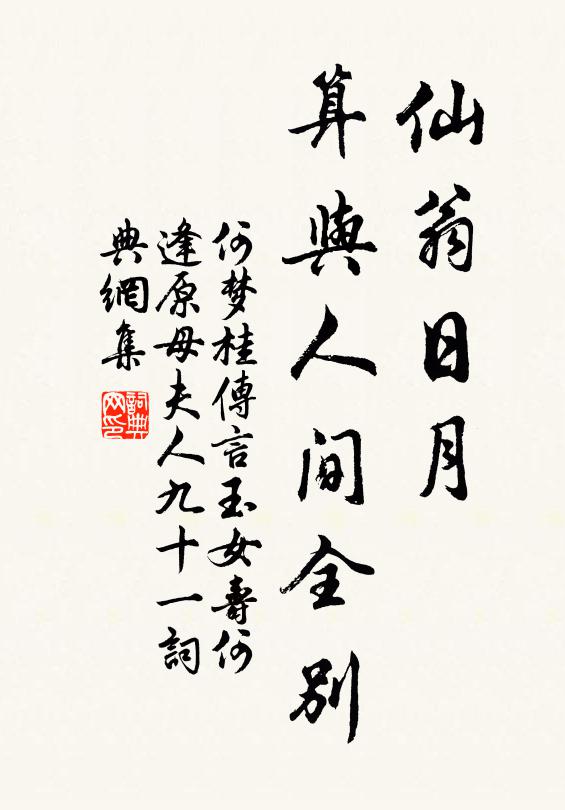 仙翁日月
算與人间全别
何梦桂傳言玉女壽何
逢原母夫人九十一詞
典網集
詞典网印